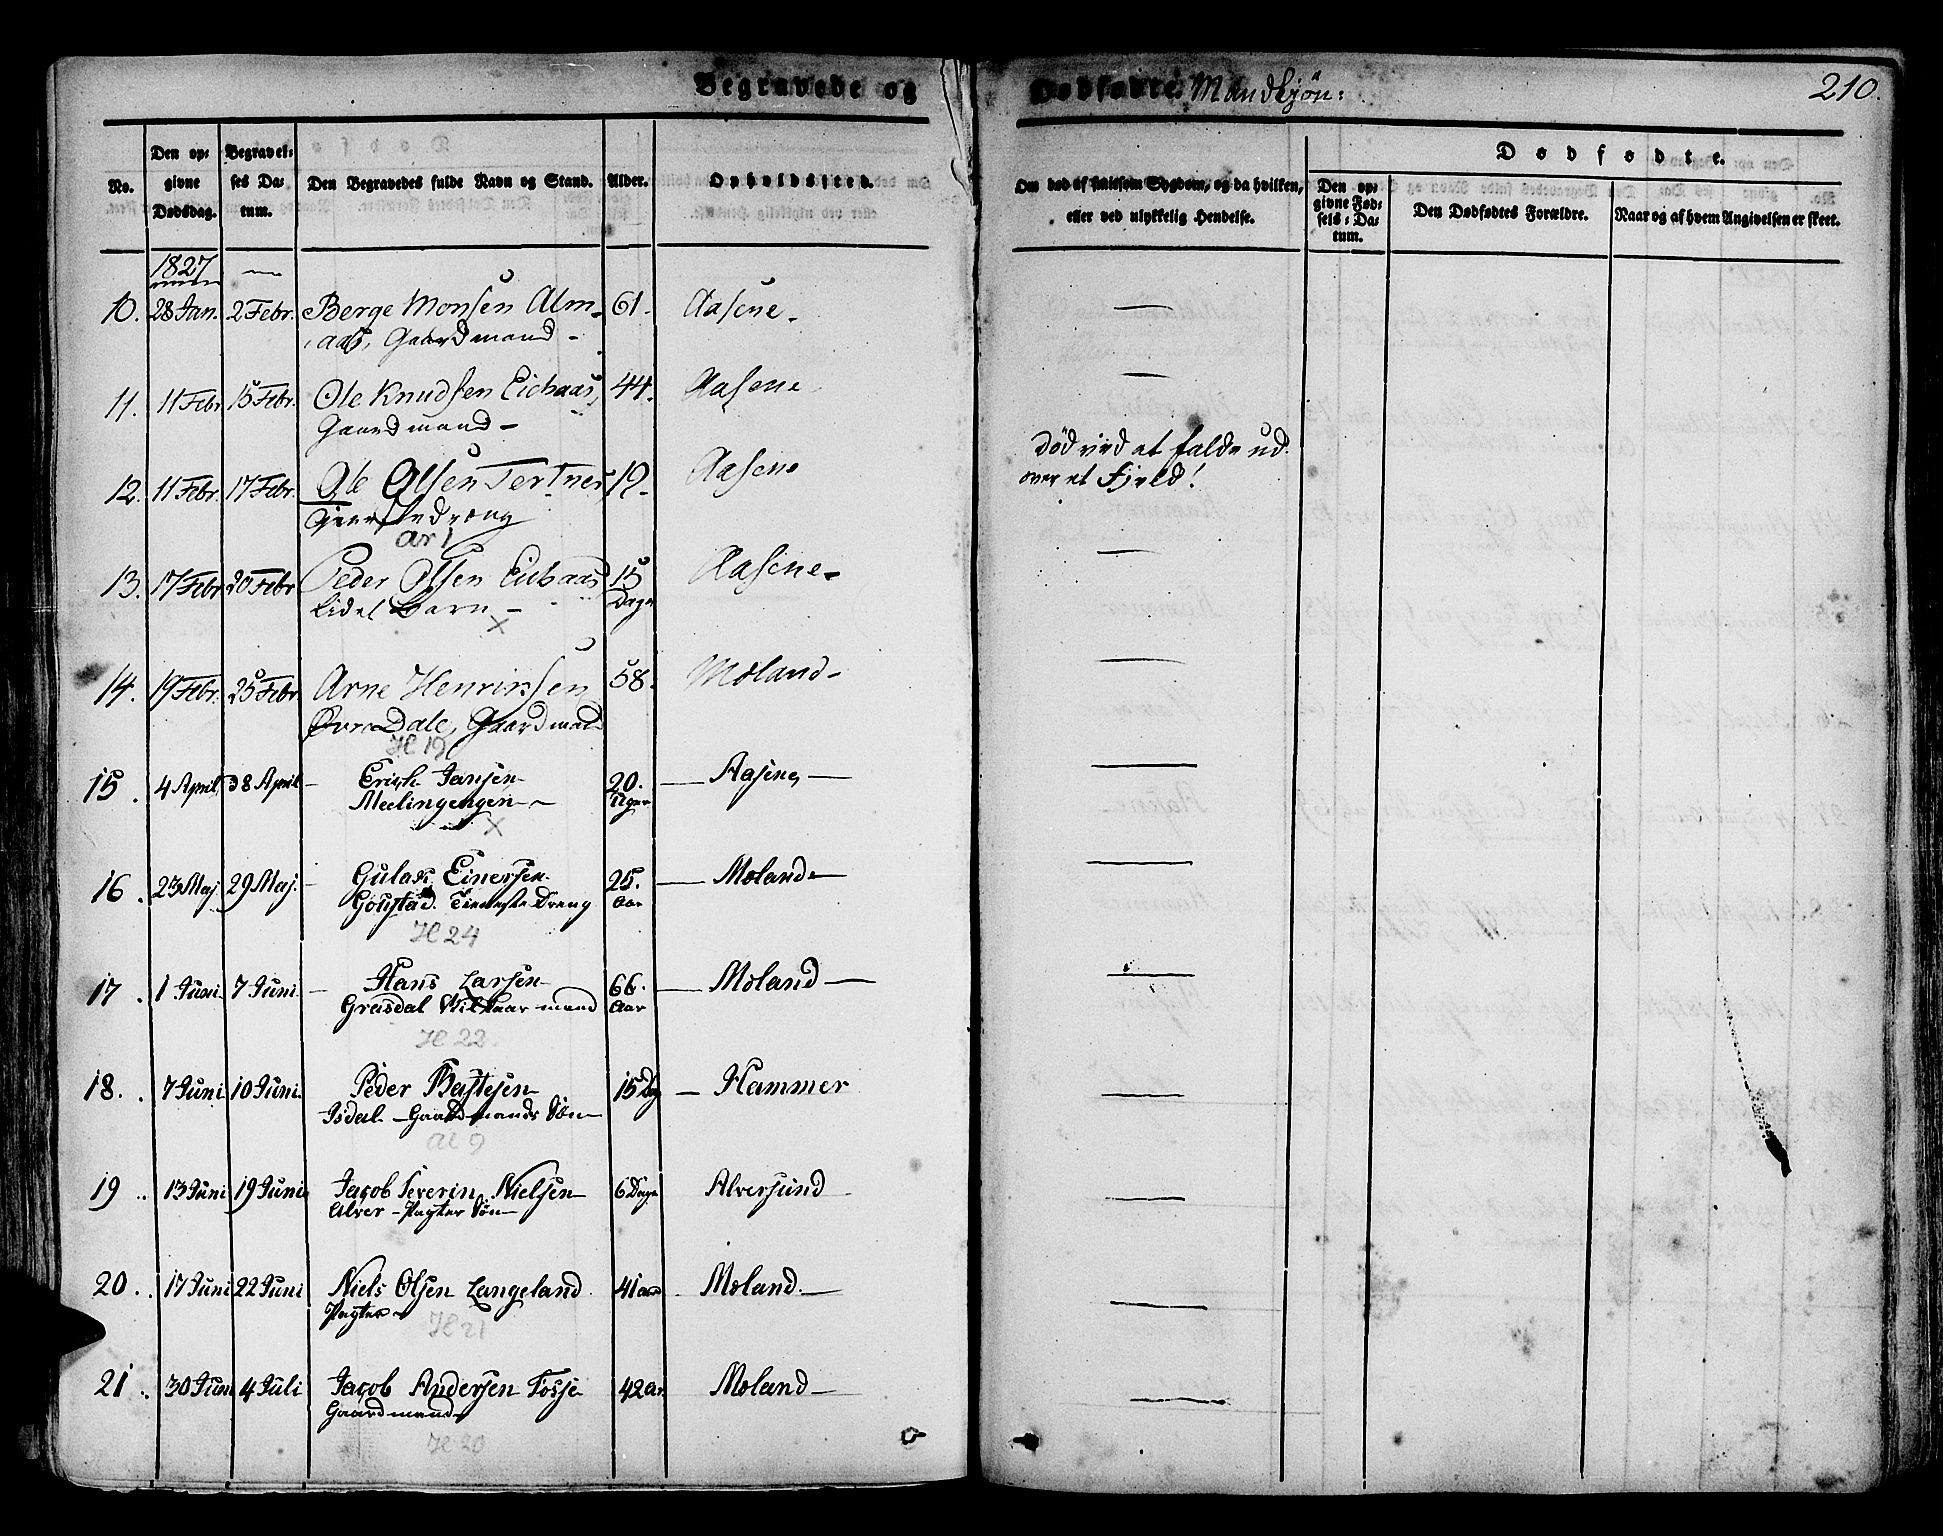 Begravede og Dødfødte. Mandkjön: 210.
No. Den opgivne Dødsdag. Begravelses Datum. Den Begravedes fulde Navn og Stand. Alder. Opholdssted. Om død af smitsom Sygdom, og da hvilken, eller ved ulykkelig Hendelse. Dødfødte. Den opgivne Fødsels-Datum. Den Dødfødtes Forældre. Naar og af hvem Angivelsen er skeet.
1827 —
10. 28 Jan. 2 Febr. Berge Monsen Alm- 61. Aasene. —
aas, Gaardmand -
11. 11 Febr 15 Febr. Ole Knudsen Eichaas, 44. Aasene —
Gaardmand -
Död ved at falde ud
12. 11 Febr. 17 Febr. Ole Olsen Tertnes 19. Aasene over et Fjeld!
Ar 1
13. 17 Febr 20 Febr Peder Olsen Eichaas 15 Aasene - —
lidet Barn - Dage
X
14. 19 Febr. 25 Febr Arne Henriksen 58. Moland - —
Øvre Dale, Gaardmand
H 19
15. 4 April 8 April - Erich Jansen 20. — Aasene, — —
Meelingengen - Uger
X
16. 23 Maj 29 Maj. - Gulak Einersen 25. — Moland - —
Tieneste Dreng Aar
H 24
17. 1 Juni. 7 Juni. - Hans Larsen 66. — Moland — —
mand Aar
H 22
18. 7 Juni. 10 Juni. Peder Bastesen 15 Dg — Hammer —
Isdal - Gaardmands Søn -
Al 9
19.. 13 Juni 19 Juni Jacob Severin Nielsen 6 Dage Alversund —
Alver - Pagter Søn -
20.. 17 Juni 22 Juni Niels Olsen Langeland 41 aar Moland. — —
Pagter -
H 21
21.. 30 Juni 4 Juli Jacob Andersen Fosse 42 ar. Moland — —
Gaardmand
H 20